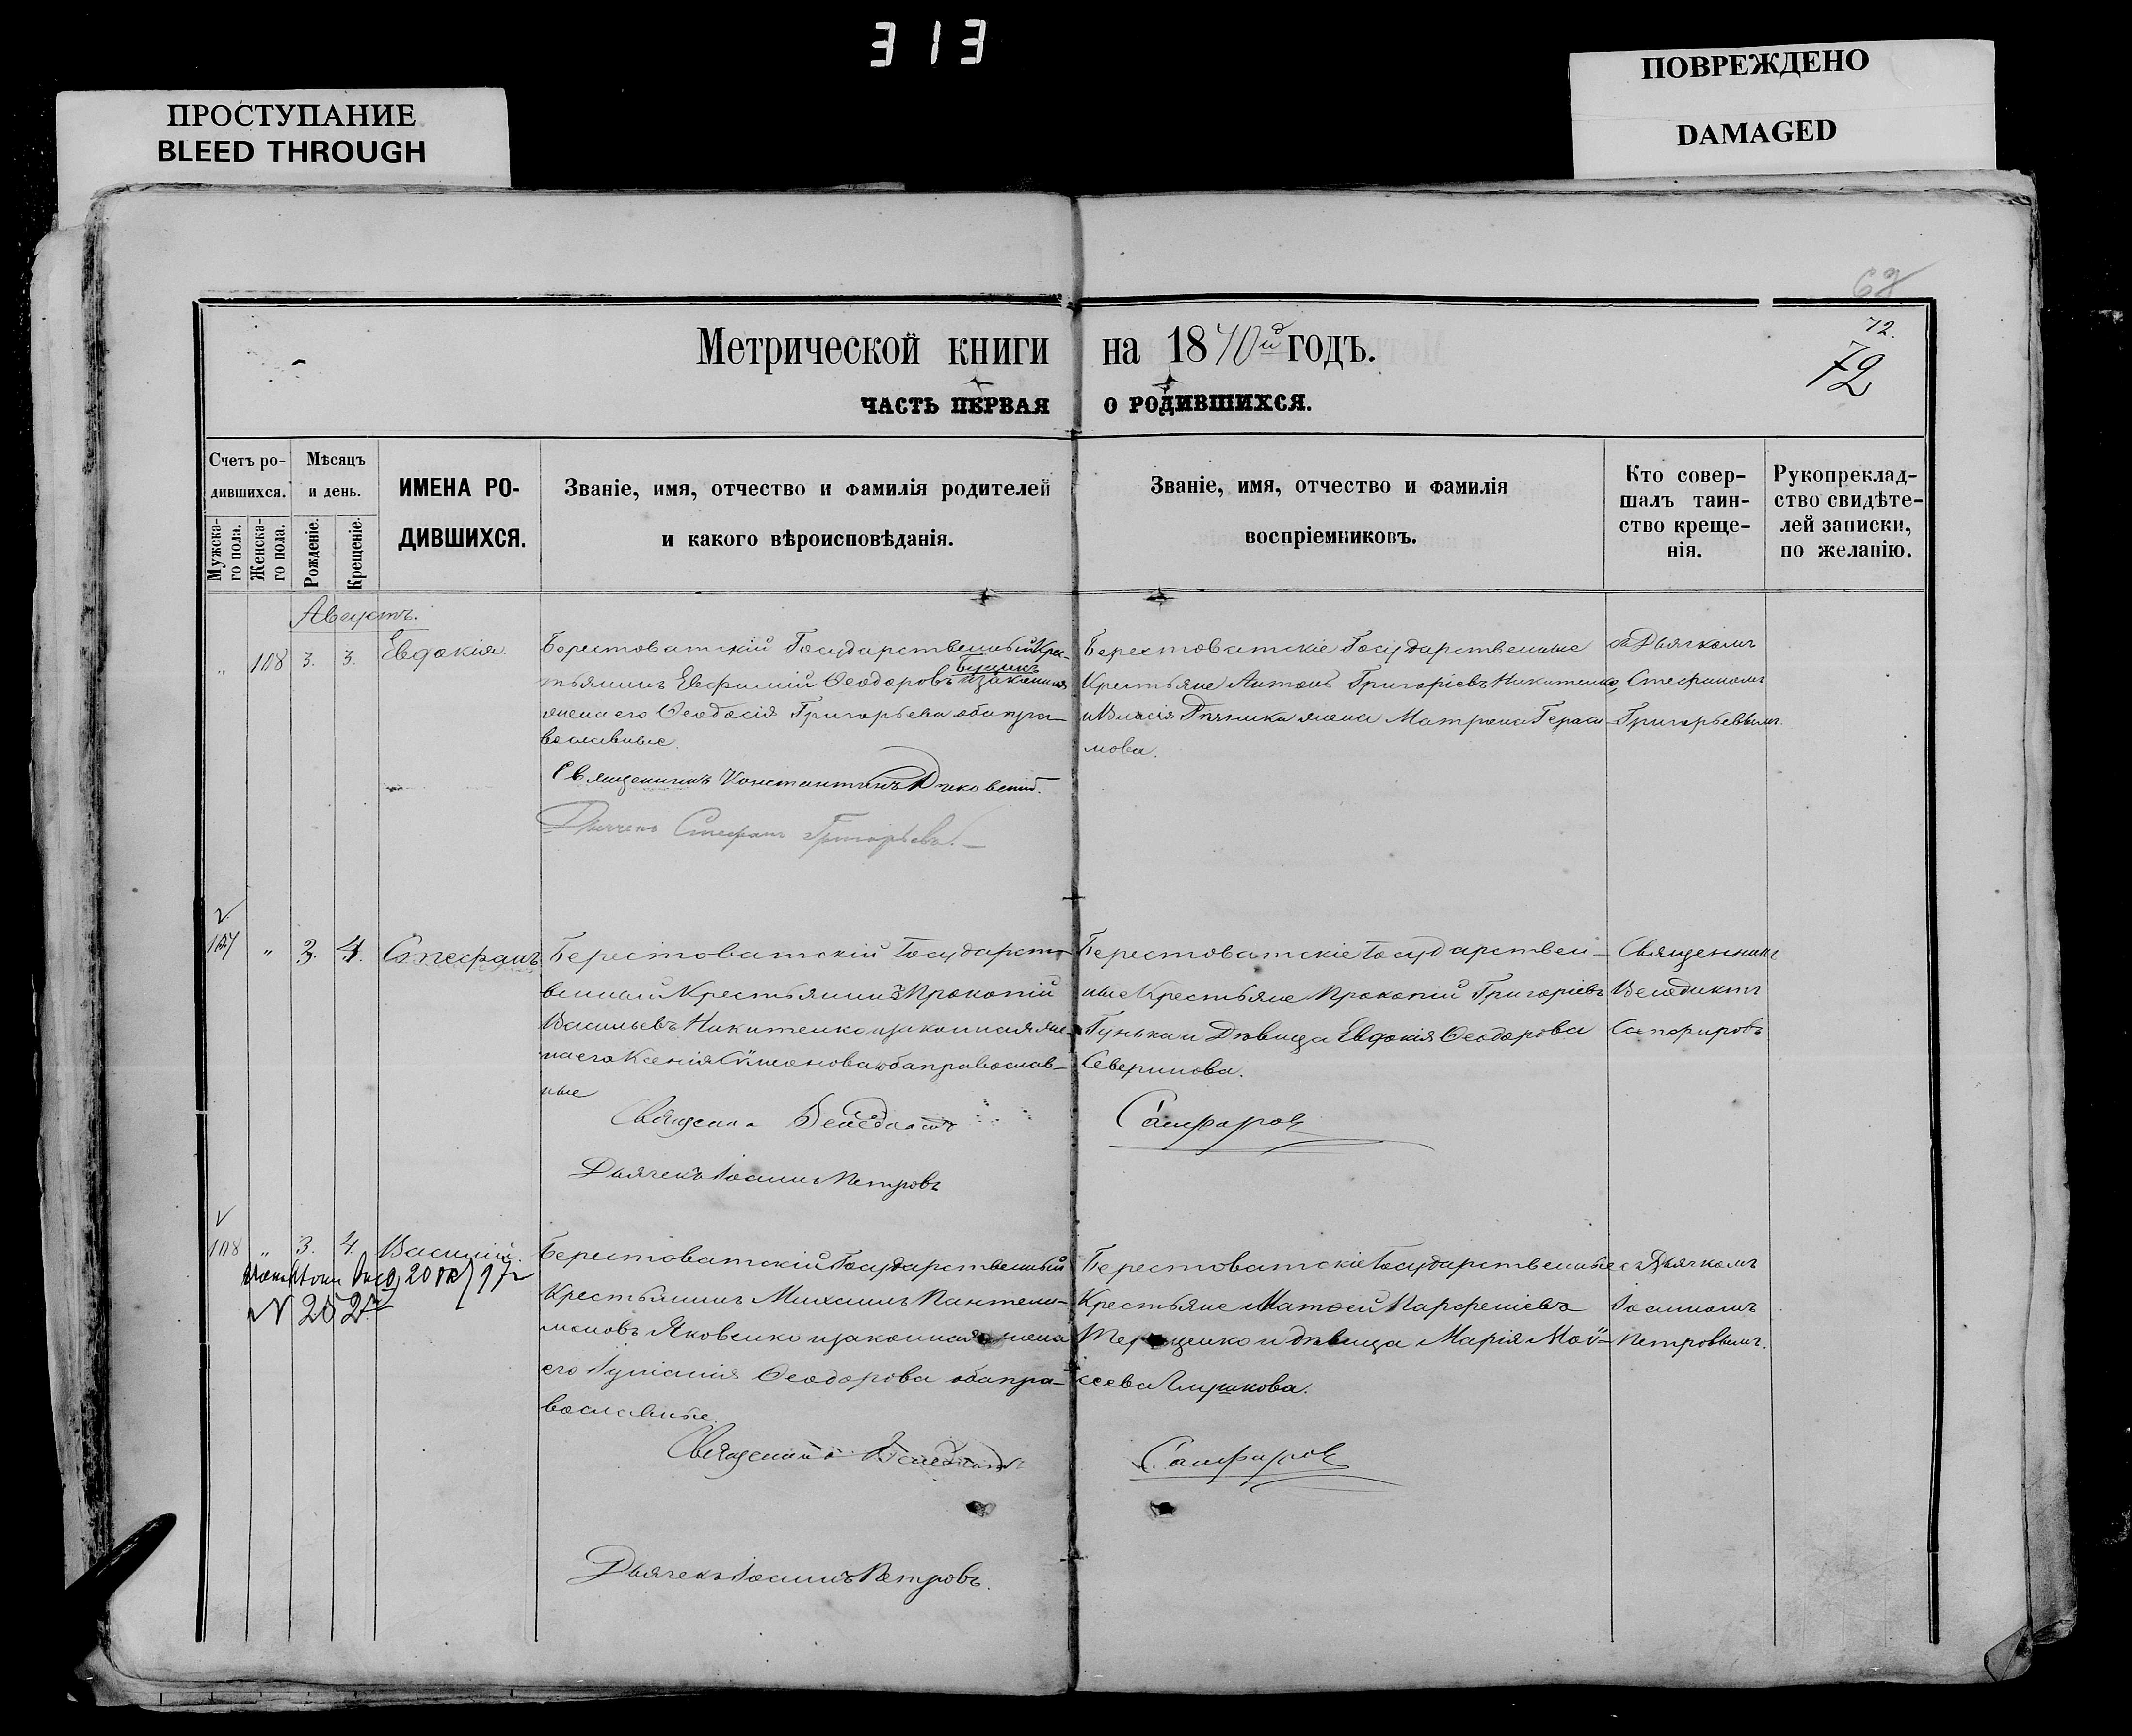 313
ПРОСТУПАНИЕ
BLEED THROUGH
ПОВРЕЖДЕНО
DAMAGED
68
72.
72
Метрической книги на 1870й годъ.
ЧАСТЬ ПЕРВАЯ О РОДИВШИХСЯ.
Счетъ ро-
дившихся.
Мужска-
го пола.
Женска-
го пола.
Мѣсяцъ
и день.
Рожденіе.
Крещеніе.
ИМЕНА РО-
ДИВШИХСЯ.
Званіе, имя, отчество и фамилія родителей
и какого вѣроисповѣданія.
Званіе, имя, отчество и фамилія
воспріемниковъ.
Кто совер-
шалъ таин-
ство креще-
нія.
Рукопреклад-
ство свидѣте-
лей записки,
по желанію.
Августъ.
" 108 3. 3. Евдокія.
Берестоватскій Государственный Кре-
стьянинъ Евфимій Ѳеодоровъ и законная
жена его Ѳеодосія Григорьева оба пра-
вославные.
Священникъ Константинъ
Дьячекъ Стефанъ Григорьевъ.
Берестоватскіе Государственные
Крестьяне Антонъ Григоріевъ Никитенко,
и Власія жена Матрона Гераси-
мова.
съ Дьячкомъ
Стефаномъ
Григорьевымъ
107 " 3. 4. Стефанъ
Берестоватскій Государст-
венный Крестьянинъ Прокопій
Васильевъ Никитенко и законная же-
на его Ксенія Сѵмонова оба православ-
ные
Священникъ Венедиктъ Сапфировъ
Дьячекъ Іоаннъ Петровъ
Берестоватскіе Государствен-
ные Крестьяне Прокопій Григоріевъ
Гунька и Дѣвица Евдокія Ѳеодорова
Северинова.
Священникъ
Венедиктъ
Сапфировъ
108 " 3. 4. Василій.
N 252
Берестоватскій Государственный
Крестьянинъ Михаилъ Пантели-
моновъ Яковенко и законная жена
его Іуліанія Ѳеодорова оба пра-
вославные.
Священникъ Венедиктъ Сапфировъ
Дьячекъ Іоаннъ Петровъ.
Берестоватскіе Государственные
Крестьяне Матѳей Парфеніевъ
Терещенко и дѣвица Марія Мої-
сеева Глушкова.
съ Дьячкомъ
Іоанномъ
Петровымъ.